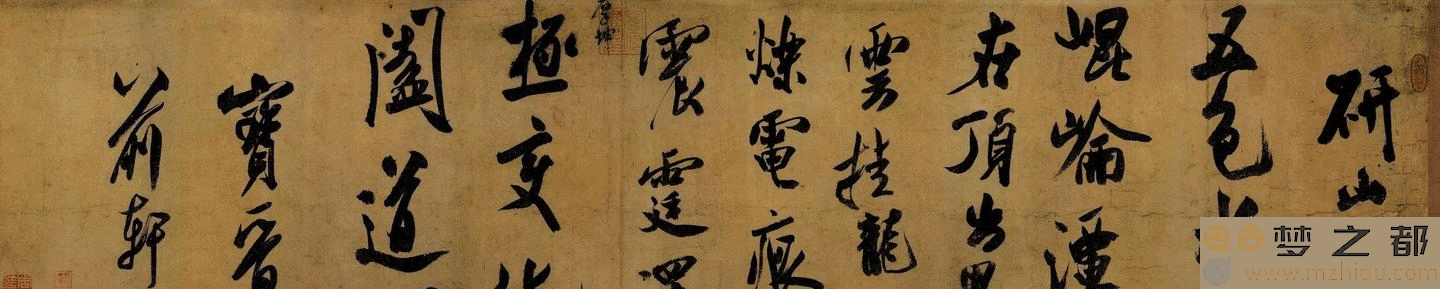 研山
五色
崐崘潭
在頂出
雲挂龍
爍電痕
震霆
厚坤
極变
闔道
寶晉
前軒
梦之都
www.mzhidu.com